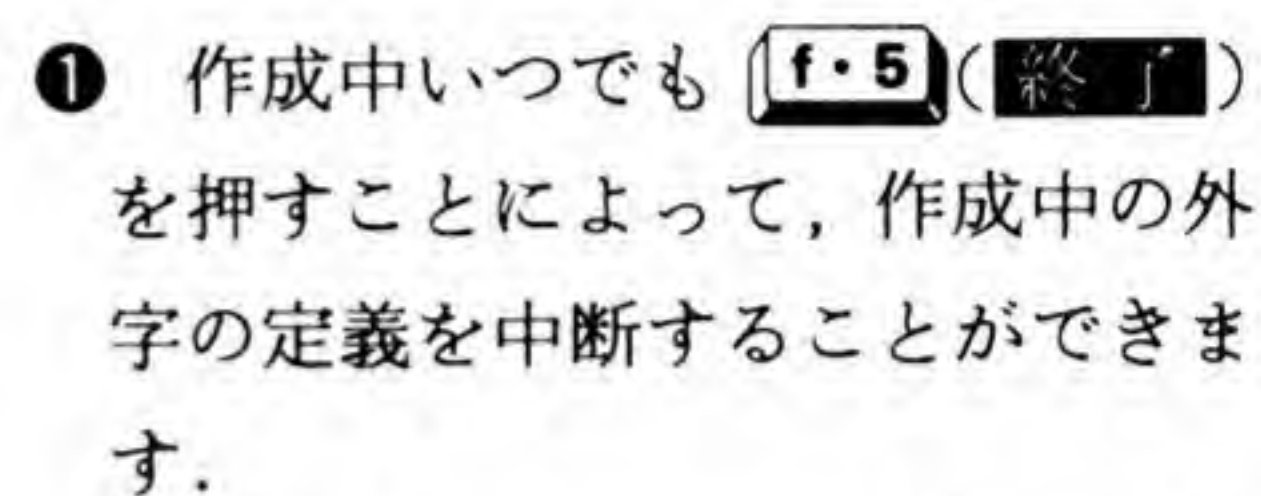 ❶ 作成中いつでも f・5 (終 了)
を押すことによって，作成中の外
字の定義を中断することができま
す．